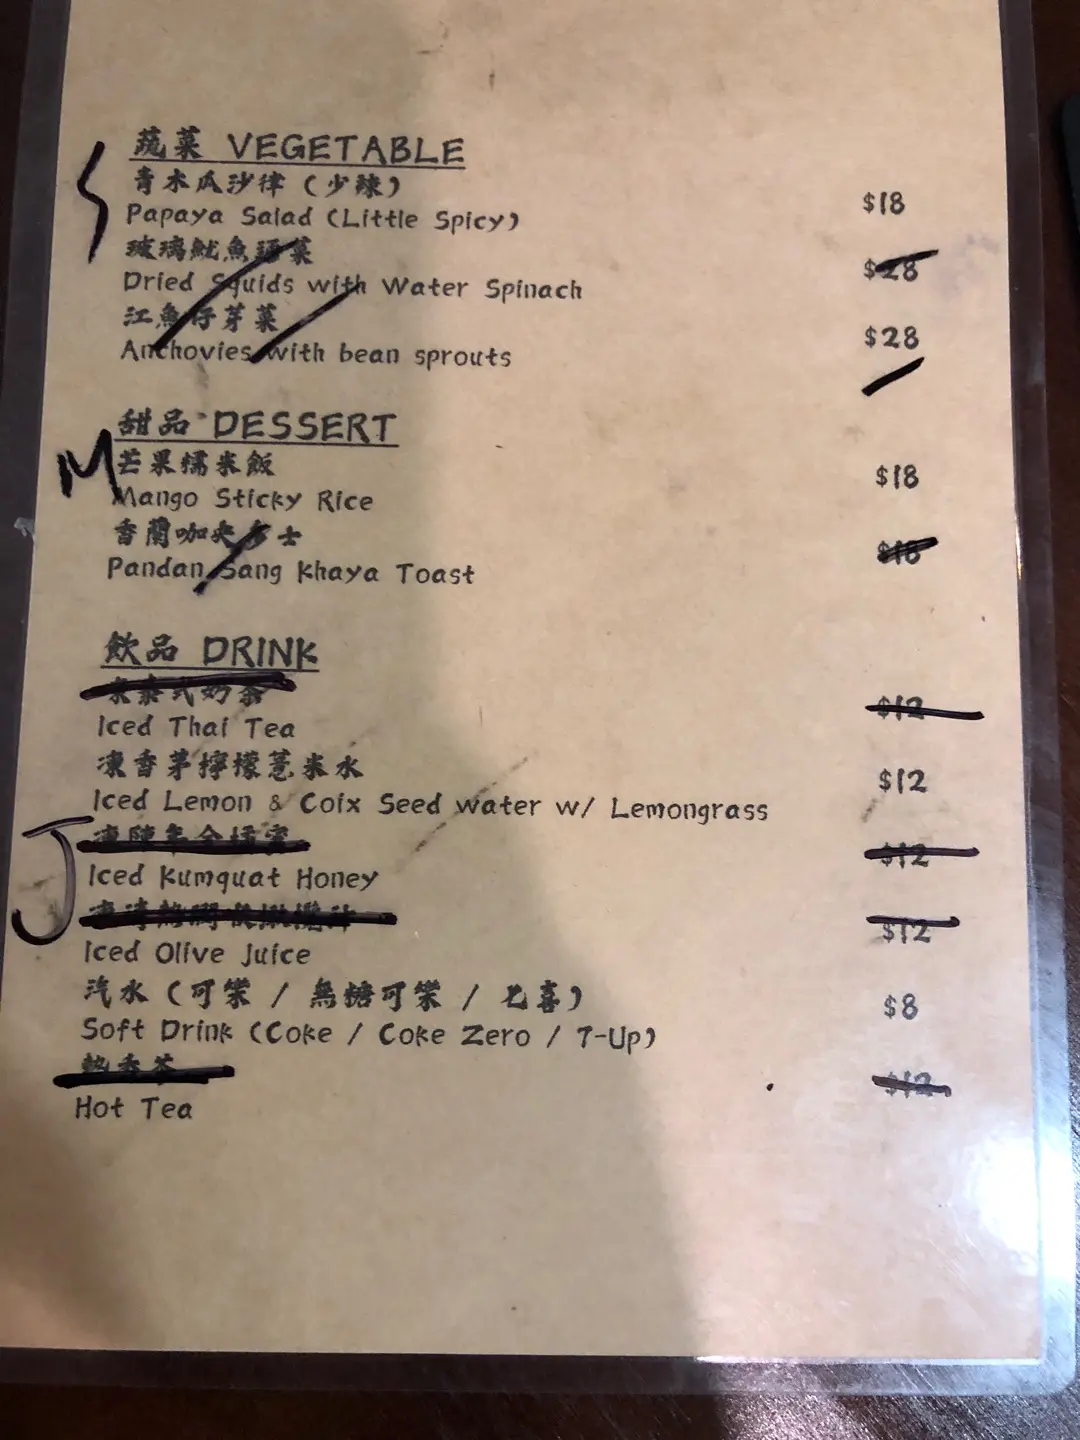 蔬菜 VEGETABLE
青木瓜沙律（少辣）
Papaya Salad (Little Spicy)
$18
玻璃魷魚通菜
Dried Squids with Water Spinach
$28
江魚仔芽菜
Anchovies with bean sprouts
$28
甜品 DESSERT
M
芒果糯米飯
Mango Sticky Rice
$18
香蘭咖央多士
Pandan Sang Khaya Toast
$18
飲品 DRINK
凍泰式奶茶
Iced Thai Tea
$12
凍香茅檸檬薏米水
Iced Lemon & Coix Seed water w/ Lemongrass
$12
J
Iced Kumquat Honey
$12
Iced Olive Juice
$12
汽水（可樂 / 無糖可樂 / 七喜）
Soft Drink (Coke / Coke Zero / 7-Up)
$8
Hot Tea
$12